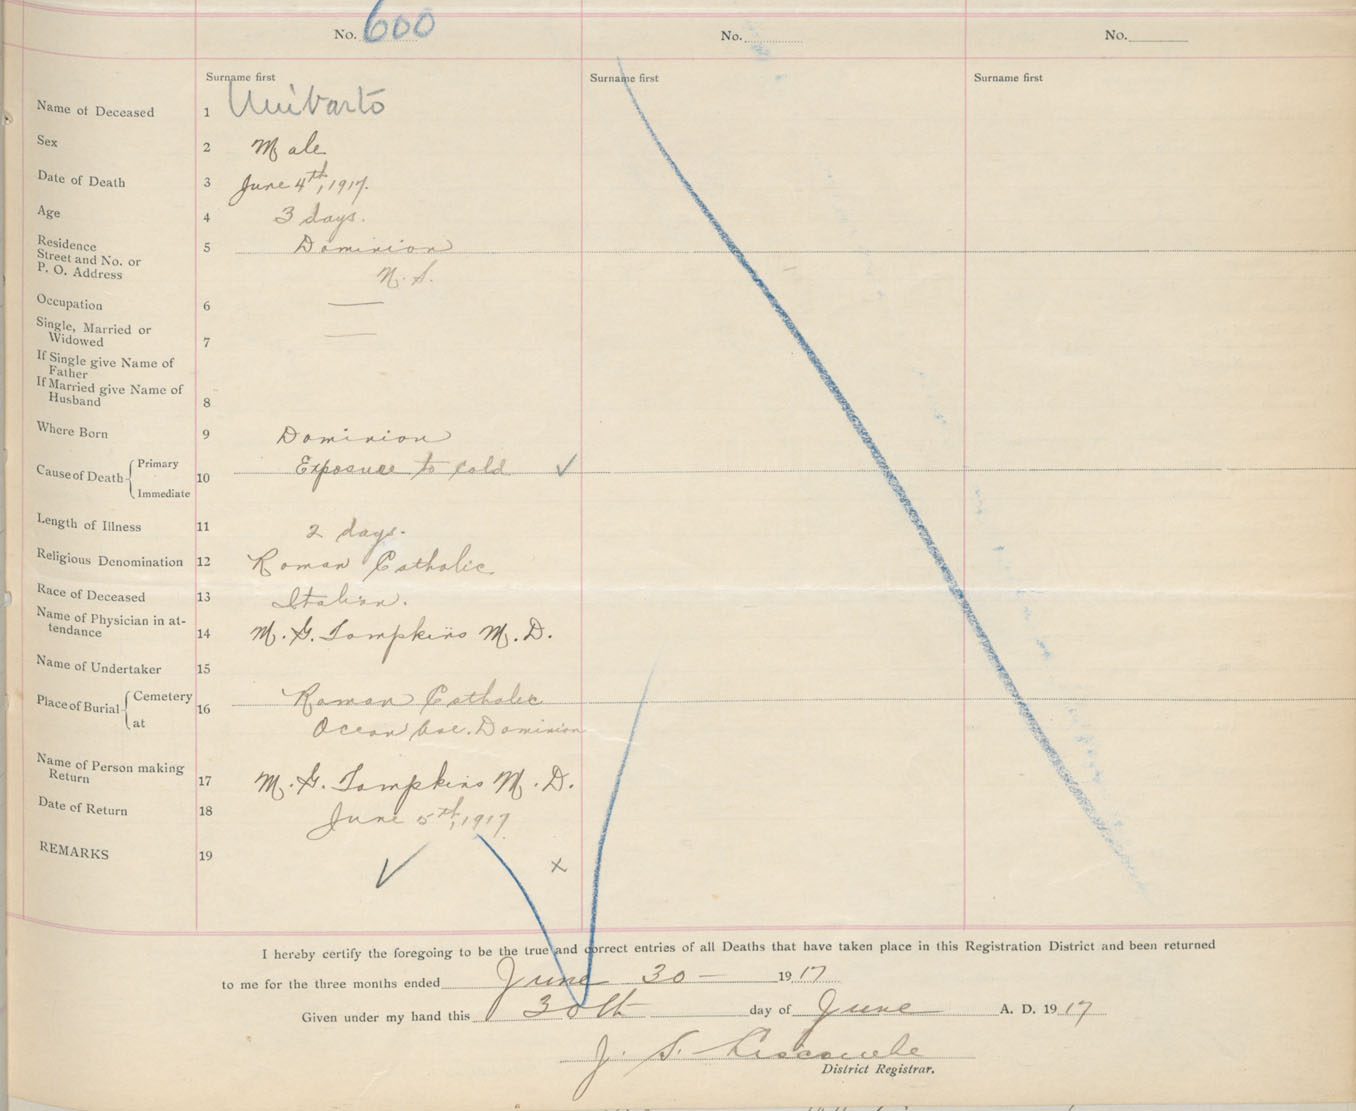 No. 600 No. No.
Surname first Surname first Surname first
Name of Deceased 1 Umbarto
Sex 2 Male
Date of Death 3 June 4th, 1917.
Age 4 3 days.
Residence 5 Dominion
Street and No. or
P. O. Address N. S.
Occupation 6 —
Single, Married or
Widowed 7 —
If Single give Name of
Father
If Married give Name of
Husband 8
Where Born 9 Dominion
Cause of Death { Primary 10 Exposure to cold ✓
Immediate
Length of Illness 11 2 days.
Religious Denomination 12 Roman Catholic
Race of Deceased 13 Italian.
Name of Physician in at-
tendance 14 M. G. Tompkins M. D.
Name of Undertaker 15
Place of Burial { Cemetery 16 Roman Catholic
at Ocean Ave. Dominion
Name of Person making
Return 17 M. G. Tompkins M. D.
Date of Return 18 June 5th, 1917
REMARKS 19 ✓ x
I hereby certify the foregoing to be the true and correct entries of all Deaths that have taken place in this Registration District and been returned
to me for the three months ended June 30 — 1917
Given under my hand this 30th day of June A. D. 1917
J. S.
District Registrar.